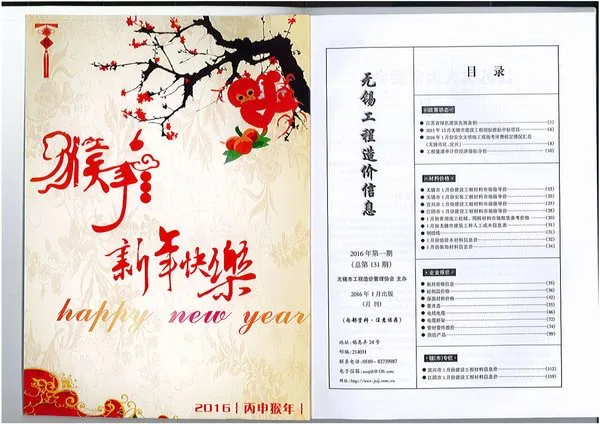 猴年
新年快樂
happy new year
2016 丙申猴年
无锡工程造价信息
2016年第一期
(总第131期)
无锡市工程造价管理协会 主办
2016年1月出版
(月刊)
(内部资料·注意保存)
地址:锡惠弄24号
邮编:214031
联系电话:0510-82739987
网址:http://www.jszj.com.cn
目录
政策动态
江苏省绿色建筑发展条例 (1)
2015年12月无锡市建设工程招标投标中标项目 (6)
2016年1月份安全文明施工现场考评费核定情况汇总
(无锡市区、宜兴) (8)
工程量清单计价经济指标分析 (10)
材料价格
无锡市1月份建设工程材料市场指导价 (15)
无锡市1月份安装工程材料市场指导价 (20)
宜兴市1月份建设工程材料市场指导价 (23)
江阴市1月份建设工程材料市场指导价 (28)
1月份常用施工机械、周转材料市场租赁参考价格 (30)
1月份无锡市建筑工种人工成本信息表 (31)
钢铁栏
1月份给排水材料信息价 (32)
1月份装饰材料信息价 (34)
企业报价
板材价格信息 (35)
砼制品价格 (36)
保温材料价格 (42)
墙内盒
电线电缆
电缆桥架
管材管件报价 (74)
消防产品 (98)
辖(市)专栏
宜兴市1月份建设工程材料信息价 (112)
江阴市1月份建设工程材料信息价 (119)